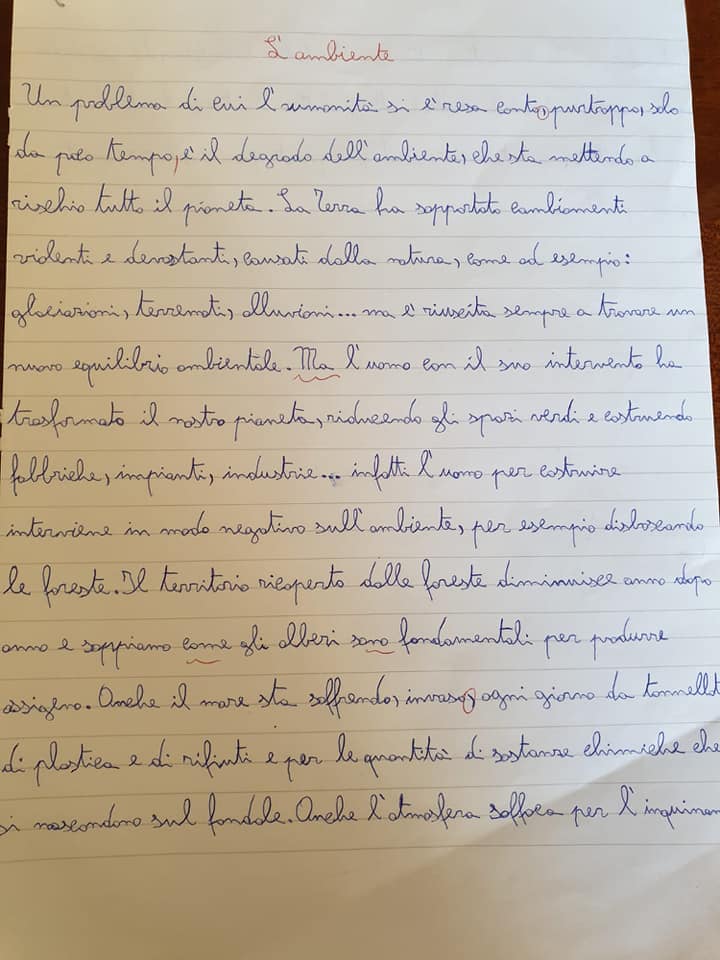 L'ambiente
Un problema di cui l'umanità si è resa conto, purtroppo, solo
da poco tempo, è il degrado dell'ambiente, che sta mettendo a
rischio tutto il pianeta. La Terra ha sopportato cambiamenti
violenti e devastanti, causati dalla natura, come ad esempio:
glaciazioni, terremoti, alluvioni... ma è riuscita sempre a trovare un
nuovo equilibrio ambientale. Ma l'uomo con il suo intervento ha
trasformato il nostro pianeta, riducendo gli spazi verdi e costruendo
fabbriche, impianti, industrie... infatti l'uomo per costruire
interviene in modo negativo sull'ambiente, per esempio disboscando
le foreste. Il territorio ricoperto dalle foreste diminuisce anno dopo
anno e sappiamo come gli alberi sono fondamentali per produrre
ossigeno. Anche il mare sta soffrendo, invaso, ogni giorno da tonnellat
di plastica e di rifiuti e per le quantità di sostanze chimiche che
si nascondono sul fondale. Anche l'atmosfera soffoca per l'inquinam